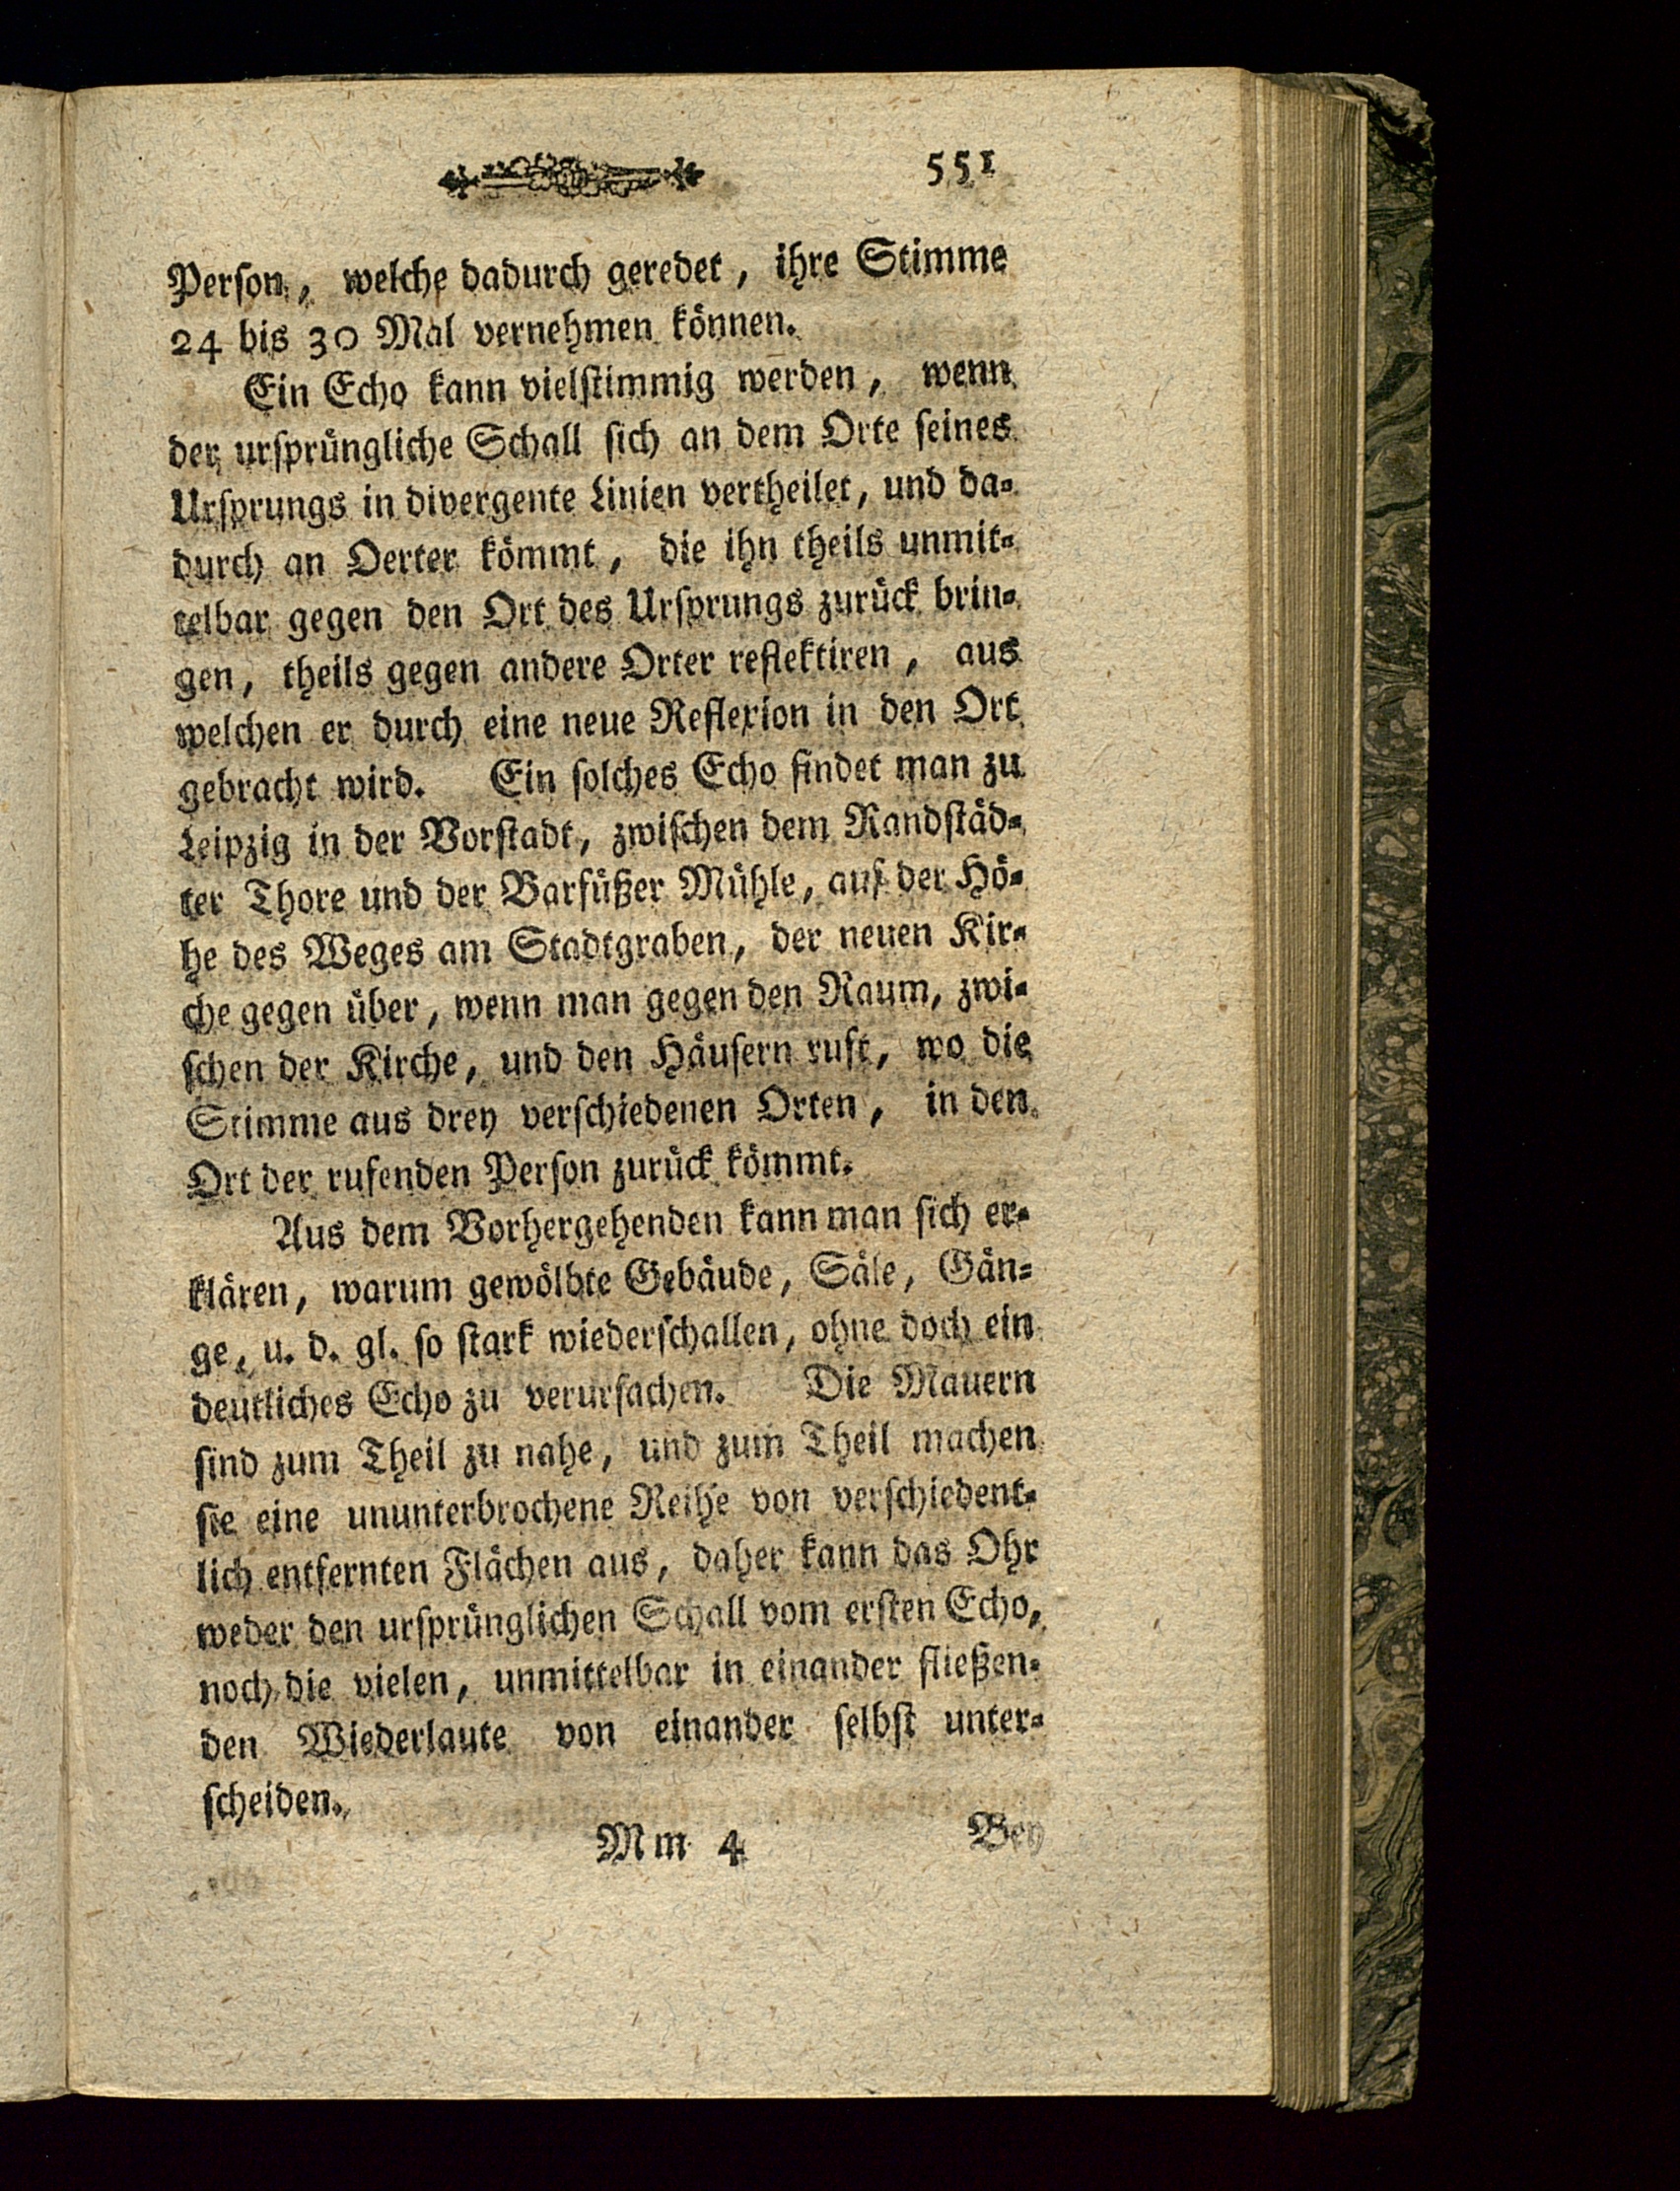 551
Person, welche dadurch geredet, ihre Stimme
24 bis 30 Mal vernehmen können.
Ein Echo kann vielstimmig werden, wenn
der ursprüngliche Schall sich an dem Orte seines
Ursprungs in divergente Linien vertheilet, und da-
durch an Oerter kömmt, die ihn theils unmit-
telbar gegen den Ort des Ursprungs zurück brin-
gen, theils gegen andere Orter reflektiren, aus
welchen er durch eine neue Reflexion in den Ort
gebracht wird. Ein solches Echo findet man zu
Leipzig in der Vorstadt, zwischen dem Randstäd-
ter Thore und der Barfüßer Mühle, auf der Hö-
he des Weges am Stadtgraben, der neuen Kir-
che gegen über, wenn man gegen den Raum, zwi-
schen der Kirche, und den Häusern ruft, wo die
Stimme aus drey verschiedenen Orten, in den
Ort der rufenden Person zurück kömmt.
Aus dem Vorhergehenden kann man sich er-
klären, warum gewölbte Gebäude, Säle, Gän-
ge, u. d. gl. so stark wiederschallen, ohne doch ein
deutliches Echo zu verursachen. Die Mauern
sind zum Theil zu nahe, und zum Theil machen
sie eine ununterbrochene Reihe von verschiedent-
lich entfernten Flächen aus, daher kann das Ohr
weder den ursprünglichen Schall vom ersten Echo,
noch die vielen, unmittelbar in einander fließen-
den Wiederlaute von einander selbst unter-
scheiden.
Mm 4 Bey